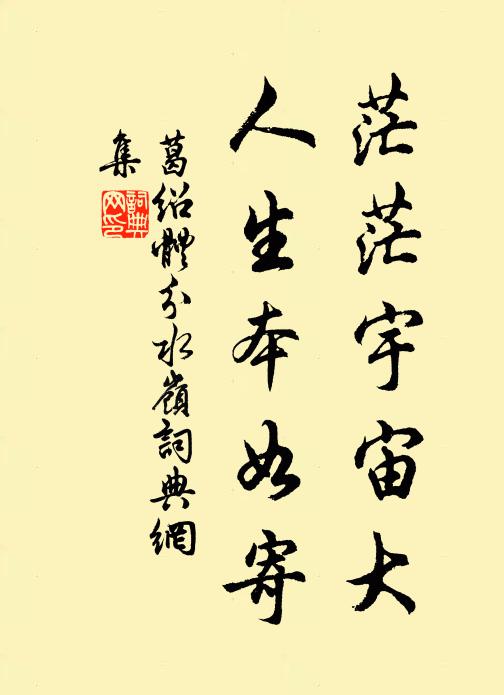 茫茫宇宙大
人生本如寄
葛绍體分水嶺詞典網
集
詞典
网印